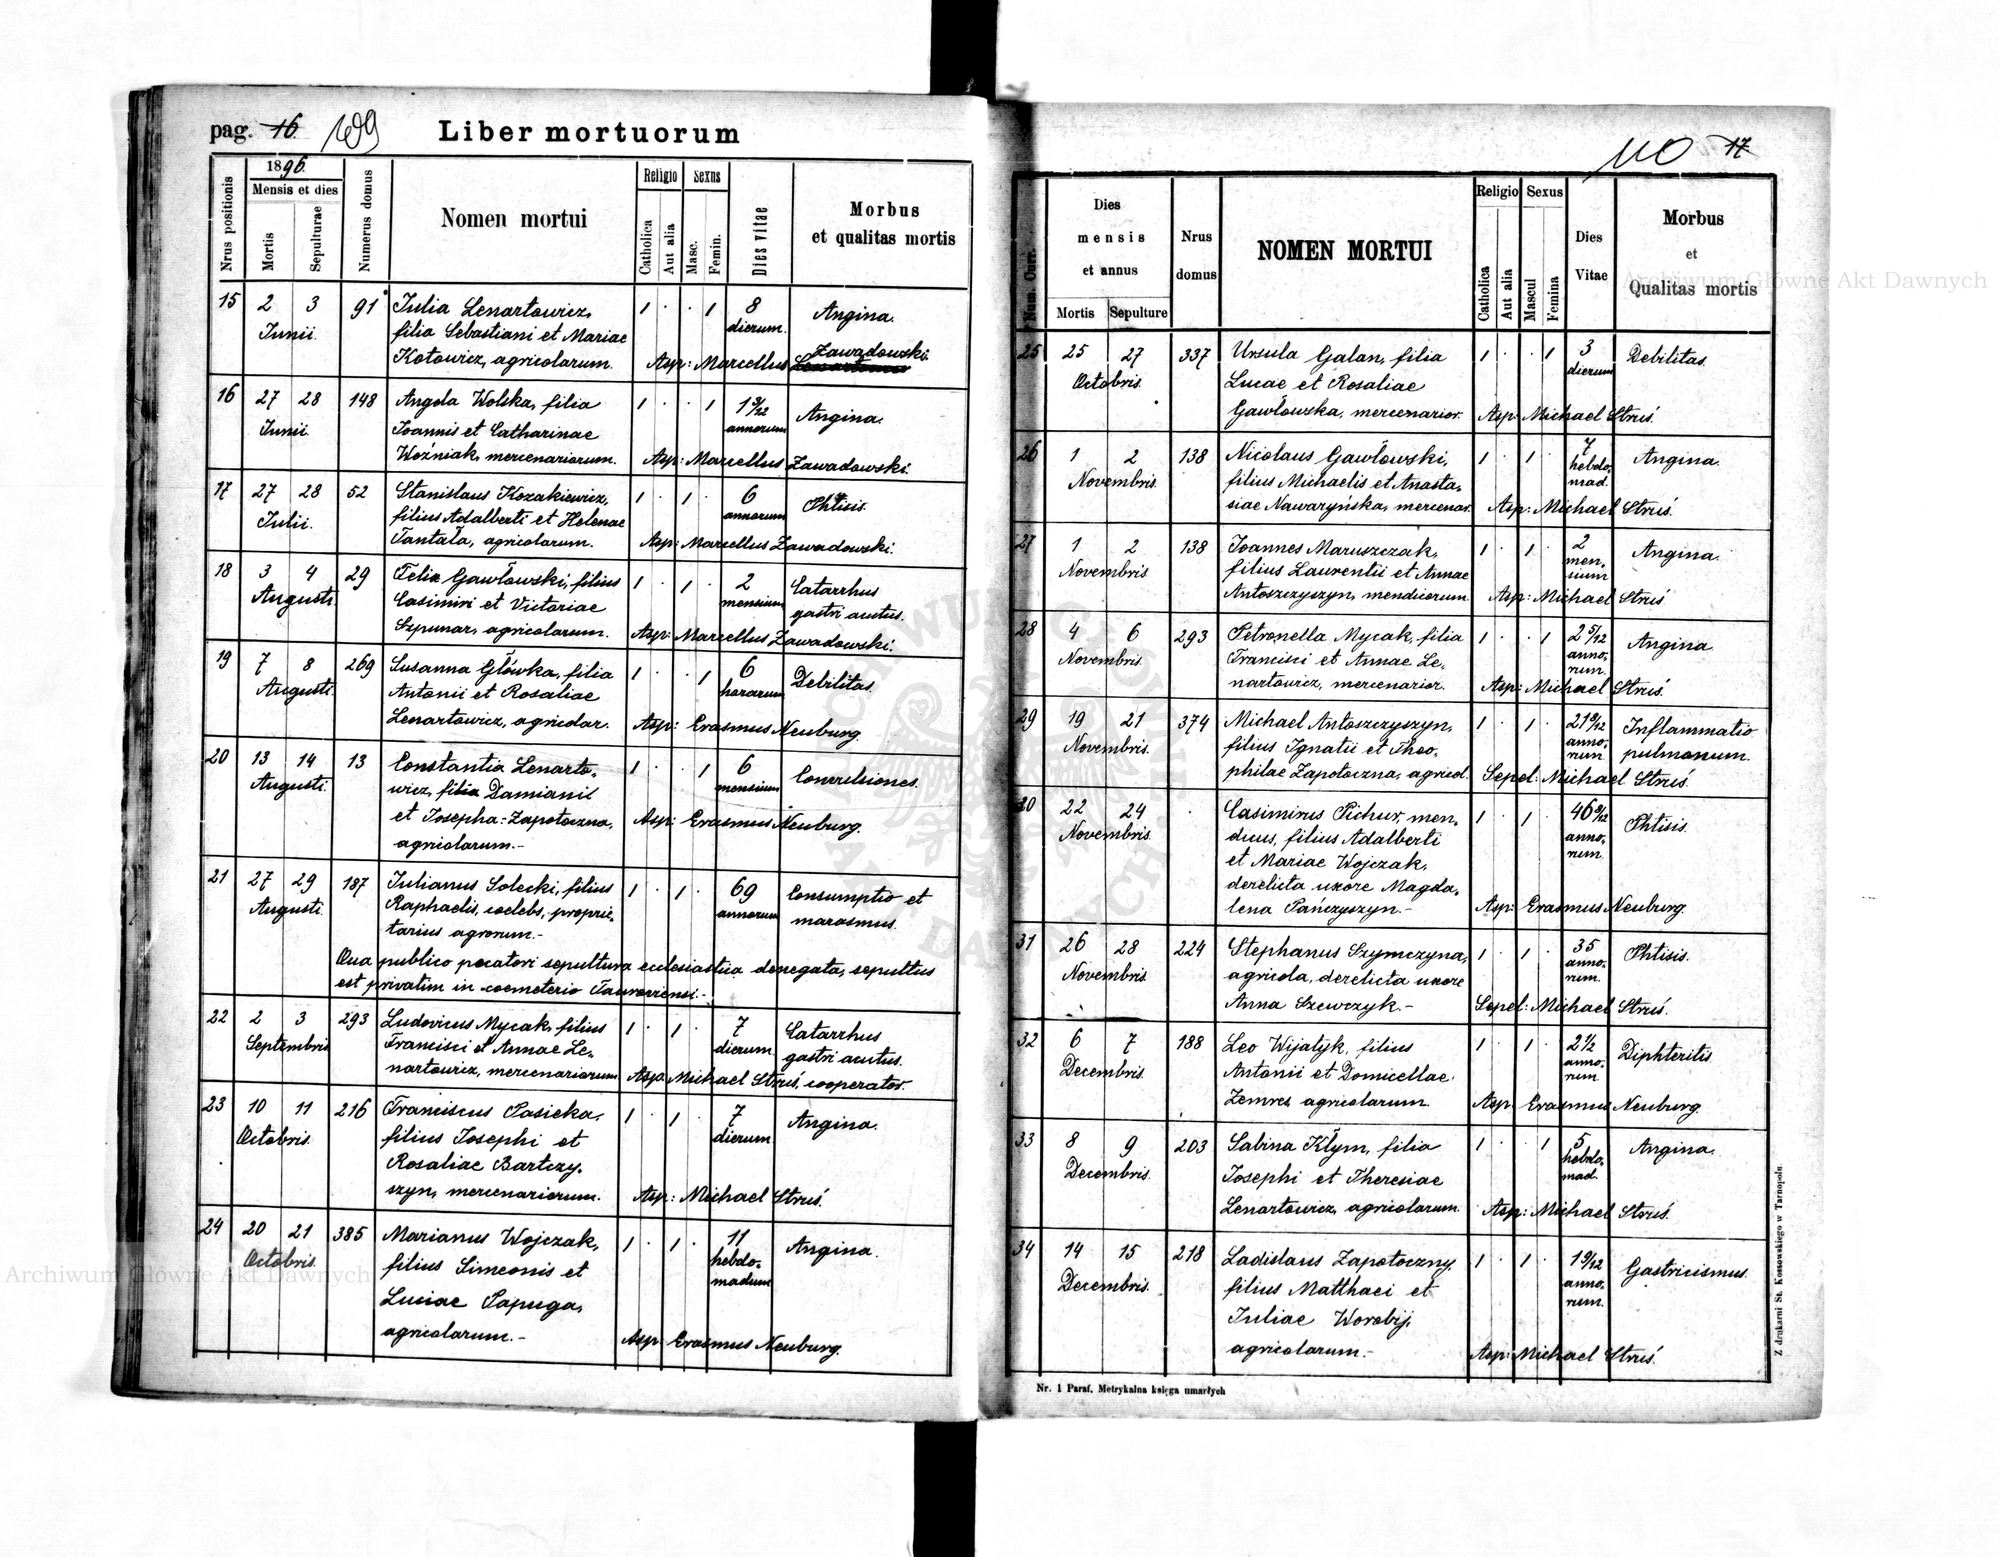 pag. 16 109 Liber mortuorum
Nrus positionis
1896
Mensis et dies
Mortis
Sepulturae
Numerus domus
Nomen mortui
Religio
Catholica
Aut alia
Sexus
Masc.
Femin.
Dies vitae
Morbus
et qualitas mortis
15 2 3 91 Iulia Lenartowicz, 1 . . 1 8 Angina.
Iunii. filia Sebastiani et Mariae dierum.
Kotowicz, agricolarum. Asp: Marcellus Zawadowski.
16 27 28 148 Angela Wolska, filia 1 . . 1 1 9/12 Angina.
Iunii. Ioannis et Catharinae annorum
Woźniak, mercenariorum. Asp: Marcellus Zawadowski.
17 27 28 52 Stanislaus Kozakiewicz, 1 . 1 . 6 Phtisis.
Iulii. filius Adalberti et Helenae annorum
Tantała, agricolarum. Asp: Marcellus Zawadowski.
18 3 4 29 Felix Gawłowski, filius 1 . 1 . 2 Catarrhus
Augusti. Casimiri et Victoriae mensium gastri acutus.
Szpunar, agricolarum. Asp: Marcellus Zawadowski.
19 7 8 269 Susanna Główka, filia 1 . . 1 6 Debilitas.
Augusti. Antonii et Rosaliae horarum
Lenartowicz, agricolar. Asp: Erasmus Neuburg.
20 13 14 13 Constantia Lenarto- 1 . . 1 6 Convulsiones.
Augusti. wicz, filia Damianii mensium
et Iosepha Zapotoczna, Asp: Erasmus Neuburg.
agricolarum.-
21 27 29 187 Iulianus Solecki, filius 1 . 1 . 69 Consumptio et
Augusti. Raphaelis, coelebs, proprie- annorum marasmus.
tarius agrorum.-
Qua publico pecatori sepultura ecclesiastica denegata, sepultus
est privatim in coemeterio
22 2 3 293 Ludovicus Mycak, filius 1 . 1 . 7 Catarrhus
Septembris Francisci et Annae Le- dierum. gastri acutus.
nartowicz, mercenariorum Asp. Michael Struś, cooperator.
23 10 11 216 Franciscus Pasieka, 1 . 1 . 7 Angina.
Octobris. filius Iosephi et dierum
Rosaliae Bartczy-
szyn, mercenariorum. Asp: Michael Struś.
24 20 21 385 Marianus Wojczak, 1 . 1 . 11 Angina.
Octobris. filius Simeonis et hebdo-
Luciae Papuga, madum
agricolarum.-
Asp: Erasmus Neuburg.
110 17
Num. Curr.
Dies
mensis
et annus
Mortis Sepulture
Nrus
domus
NOMEN MORTUI
Religio
Catholica
Aut alia
Sexus
Mascul
Femina
Dies
Vitae
Morbus
et
Qualitas mortis
25 25 27 337 Ursula Galan, filia 1 . . 1 3 Debilitas.
Octobris. Lucae et Rosaliae dierum
Gawłowska, mercenarior. Asp: Michael Struś.
26 1 2 138 Nicolaus Gawłowski, 1 . 1 . 7 Angina.
Novembris. filius Michaelis et Anasta- hebdo-
siae Nawaryńska, mercenar. mad. Asp: Michael Struś.
27 1 2 138 Ioannes Maruszczak, 1 . 1 . 2 Angina.
Novembris filius Laurentii et Annae men-
Antoszczyszyn, mendicorum. sium Asp: Michael Struś
28 4 6 293 Petronella Mycak, filia 1 . . 1 2 5/12 Angina.
Novembris. Francisci et Annae Le- anno-
nartowicz, mercenarior. rum. Asp: Michael Struś.
29 19 21 374 Michael Antoszczyszyn, 1 . 1 . 21 9/12 Inflammatio
Novembris. filius Ignatii et Theo- anno- pulmonum.
philae Zapotoczna, agricol. rum. Sepel: Michael Struś.
30 22 24 . Casimirus Pichur, men- 1 . 1 . 46 8/12 Phtisis.
Novembris. dicus, filius Adalberti anno-
et Mariae Wojczak, rum.
derelicta uxore Magda-
lena Pańczyszyn.- Asp: Erasmus Neuburg.
31 26 28 224 Stephanus Szymczyna, 1 . 1 . 35 Phtisis.
Novembris agricola, derelicta uxore anno-
Anna Szewczyk.- rum. Sepel: Michael Struś.
32 6 7 188 Leo Wijatyk, filius 1 . 1 . 2 1/2 Diphteritis.
Decembris. Antonii et Domicellae anno-
Zemres, agricolarum. rum Asp: Erasmus Neuburg.
33 8 9 203 Sabina Kłym, filia 1 . . 1 5 Angina.
Decembris. Iosephi et Theresiae hebdo-
Lenartowicz, agricolarum. mad. Asp: Michael Struś.
34 14 15 218 Ladislaus Zapotoczny, 1 . 1 . 1 9/12 Gastricismus.
Decembris. filius Matthaei et anno-
Iuliae Worobij, rum.
agricolarum.- Asp: Michael Struś.
Nr. 1 Paraf. Metrykalna księga umarłych
Z drukarni St. Kossowskiego w Tarnopolu.
Archiwum Główne Akt Dawnych
Archiwum Główne Akt Dawnych
ARCHIWUM GŁÓWNE AKT DAWNYCH